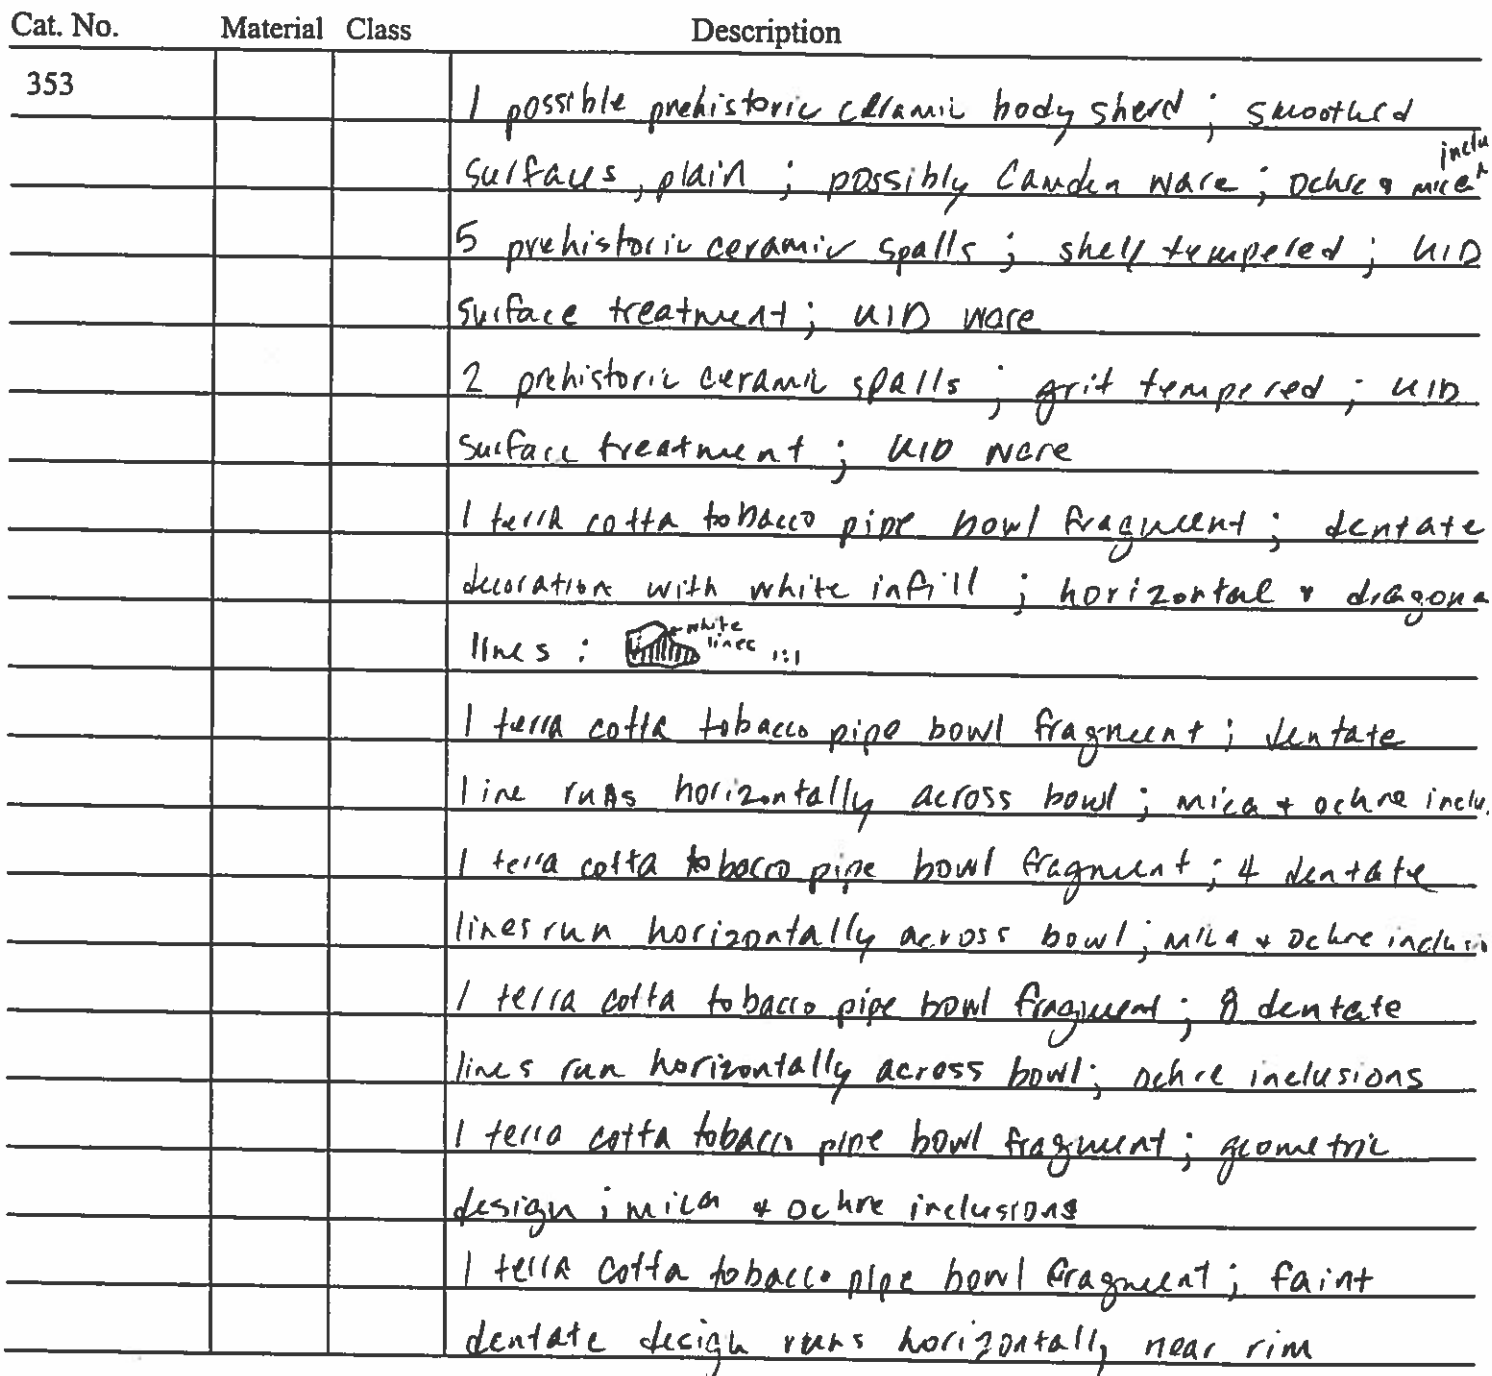 Cat. No. Material Class Description
353
1 possible prehistoric ceramic body sherd ; smoothed
inclu
surfaces, plain ; possibly Camden ware ; ochre & mica
5 prehistoric ceramic spalls ; shell tempered ; UID
surface treatment ; UID ware
2 prehistoric ceramic spalls ; grit tempered ; UID
surface treatment ; UID ware
1 terra cotta tobacco pipe bowl fragment ; dentate
decoration with white infill ; horizontal & diagona
lines : white lines 1:1
1 terra cotta tobacco pipe bowl fragment ; dentate
line runs horizontally across bowl ; mica + ochre inclu.
1 terra cotta tobacco pipe bowl fragment ; 4 dentate
lines run horizontally across bowl ; mica + ochre inclusi
1 terra cotta tobacco pipe bowl fragment ; 8 dentate
lines run horizontally across bowl ; ochre inclusions
1 terra cotta tobacco pipe bowl fragment ; geometric
design ; mica & ochre inclusions
1 terra cotta tobacco pipe bowl fragment ; faint
dentate design runs horizontally near rim